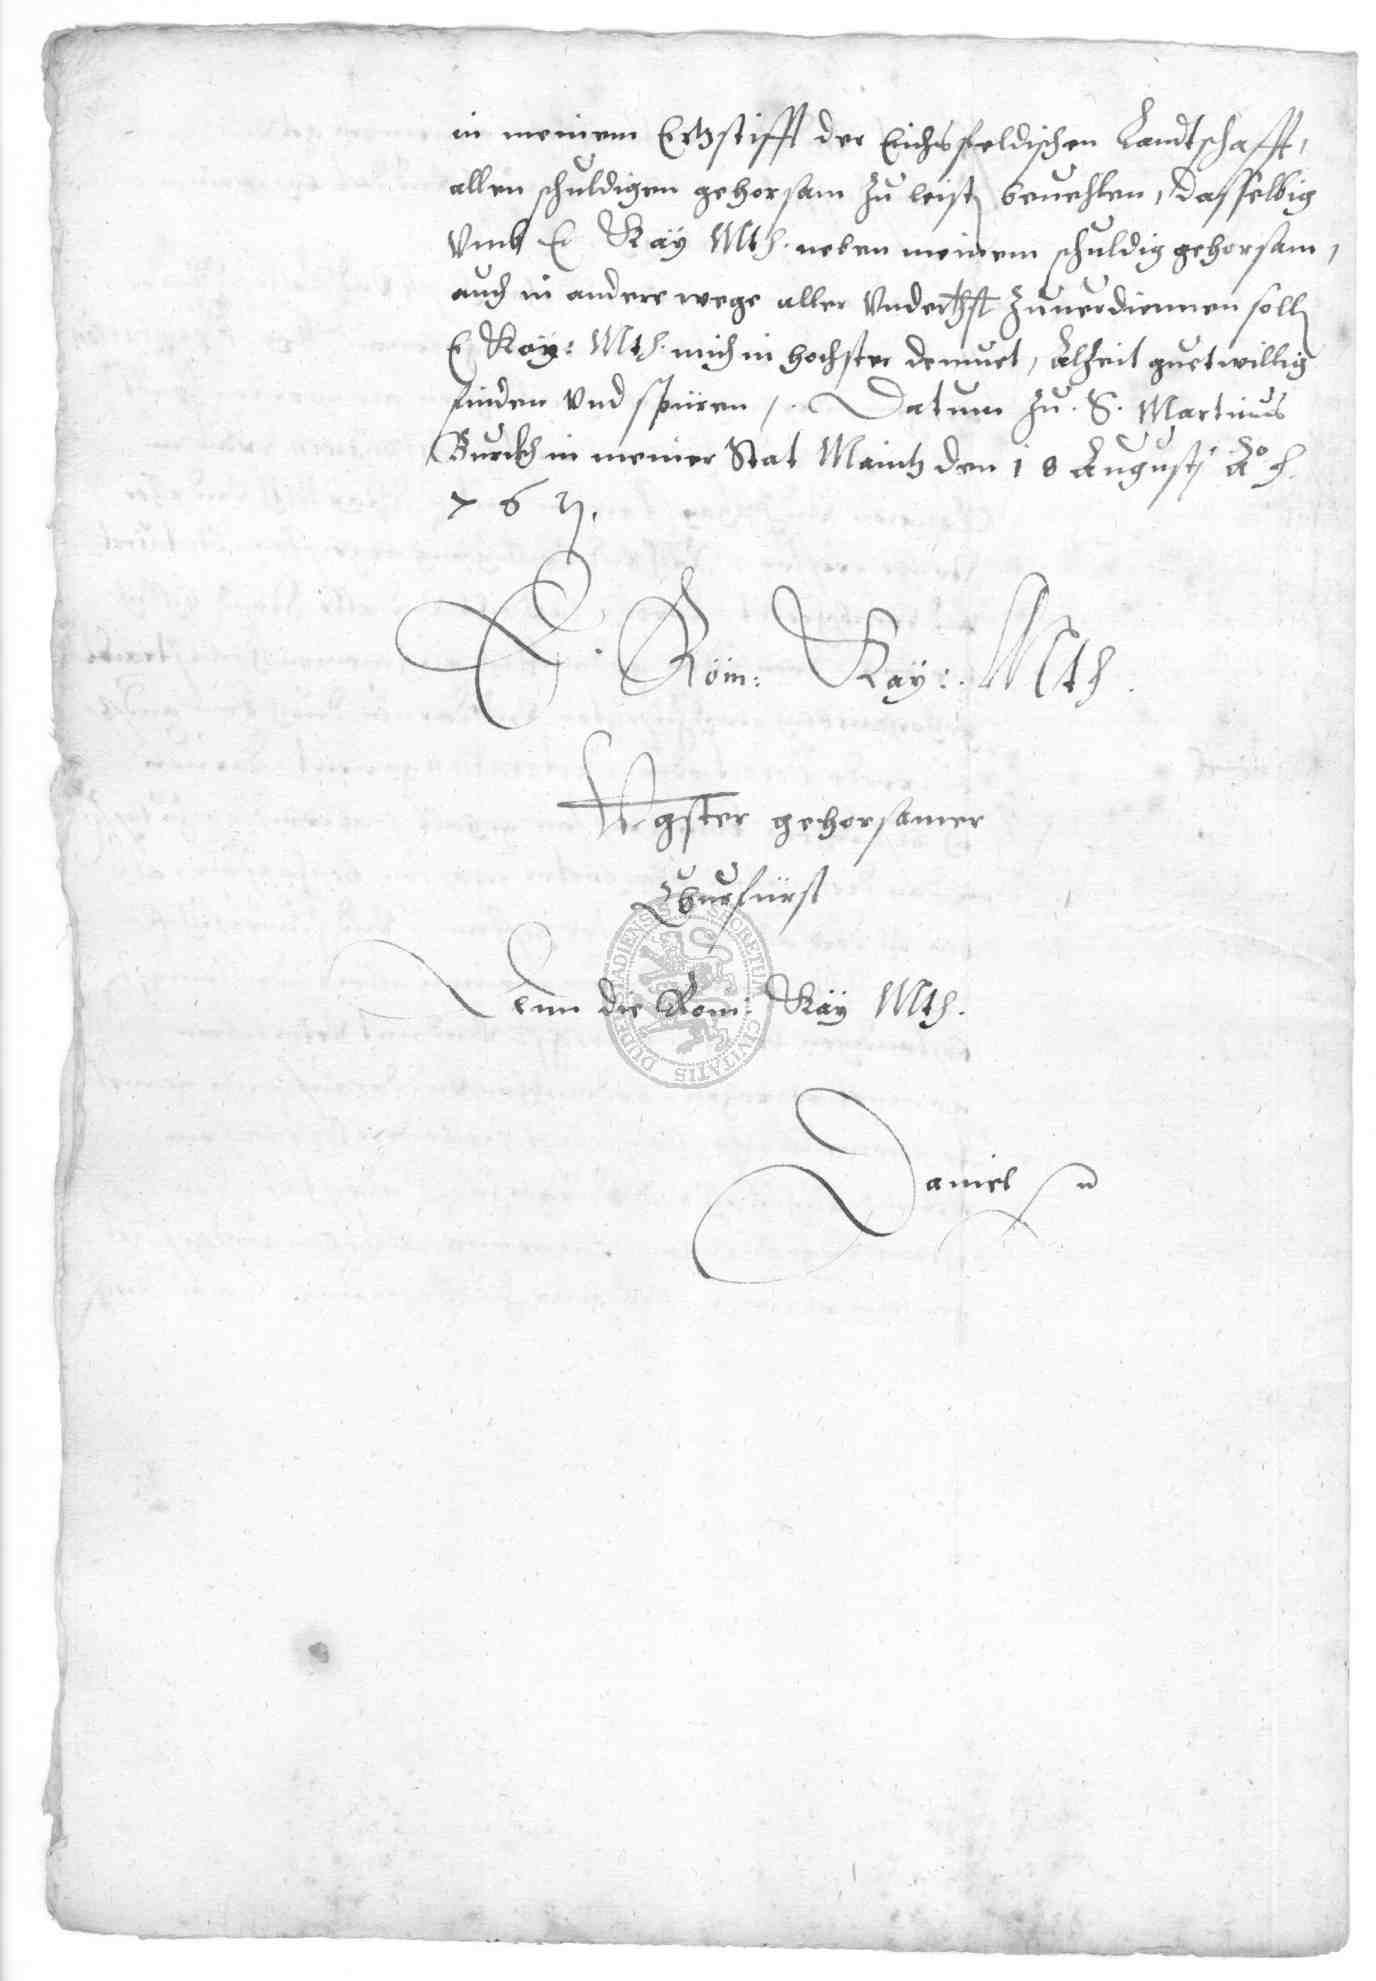 in meinem Ertzstifft der Eichsfeldischen Landtschafft,
allen schuldigen gehorsam zu leist beuehlen, Dasselbig
Vmb E Kay Mth. neben meinem schuldig gehorsam,
auch in andere wege aller Vnderthst zuuerdiennen soll
E Kay: Mth. mich in hochster demuet, Alzeit guetwillig
finden Vnd spüren /. Datum zu. S. Martinus
Burckh in meiner Stat Maintz den 18 Augustj Ao
76
E. Röm: Kay: Mth.
Vgster gehorsamer
Churfürst
Ann die Rom: Kay Mth.
Daniel
SECRETUM CIVITATIS